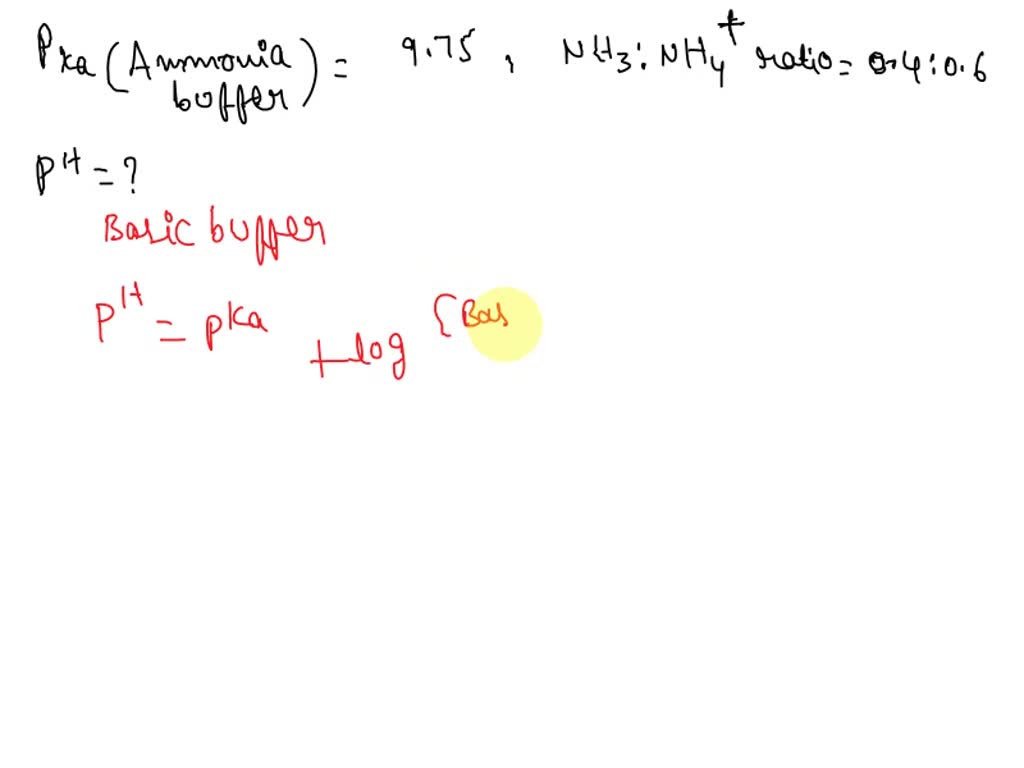 Pka (Ammonia buffer) = 9.75, NH3 : NH4+ ratio = 0.4 : 0.6
PH = ?
Basic buffer
PH = pKa + log [Bas